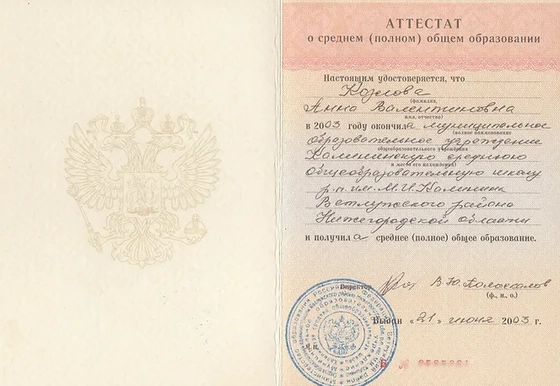 АТТЕСТАТ
о среднем (полном) общем образовании
Настоящим удостоверяется, что
Козлова
(фамилия,
Анна Валентиновна
имя, отчество)
в 2003 году окончила муниципальное
(полное наименование
образовательное учреждение
общеобразовательного учреждения
Калининскую среднюю
и место его нахождения)
общеобразовательную школу
р.п. им. М.И. Калинина
Ветлужского района
Нижегородской области
и получила среднее (полное) общее образование.
Директор В.Ю.
(ф., и., о.)
Выдан «21» июня 2003 г.
М.П.
Б №